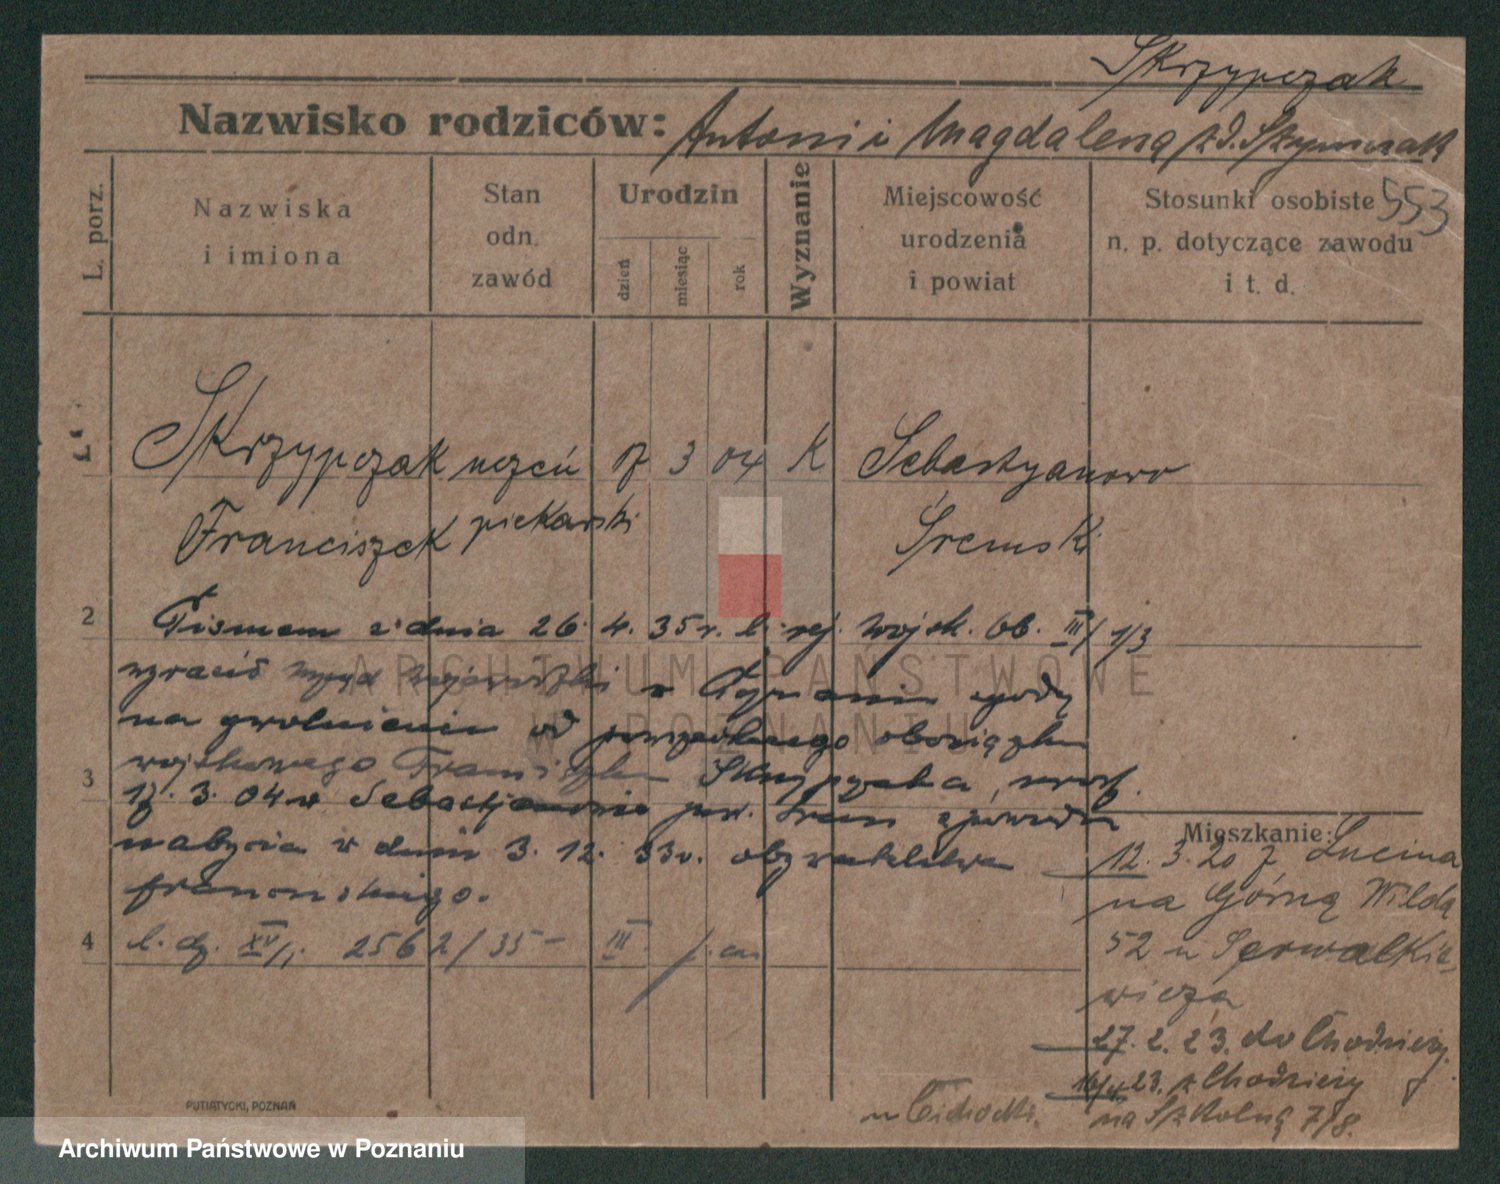 Skrzypczak
Nazwisko rodziców: Antoni i Magdalena z d.
553
L. porz.
Nazwiska
i imiona
Stan
odn.
zawód
Urodzin
dzień
miesiąc
rok
Wyznanie
Miejscowość
urodzenia
i powiat
Stosunki osobiste
n. p. dotyczące zawodu
i t. d.
1
Skrzypczak uczeń 3 04 K Sebastyanowo
Franciszek piekarski Śremski
2
Pismem z dnia 26. 4. 35 r. l. rej. Wojsk. Ob. III/1/3
wojewódzki w Poznaniu zgody
na zwolnienie od powszechnego obowiązku
3
wojskowego Franciszka Skrzypczaka, urodz.
3. 04 w Sebastjanowie pow. Śrem z powodu
nabycia w dniu 3. 12. 33 r. obywatelstwa
francuskiego.
4
l. dz. XV/1. 2562/35 - III
Mieszkanie:
12. 3. 20 z Lucina
na Górną Wildą
52 u
wicza
27. 2. 23. do Chodzieży
23. z Chodzieży
na Szkolną 7/8.
u Cichocki.
PUTIATYCKI, POZNAŃ
ARCHIWUM PAŃSTWOWE
W POZNANIU
Archiwum Państwowe w Poznaniu